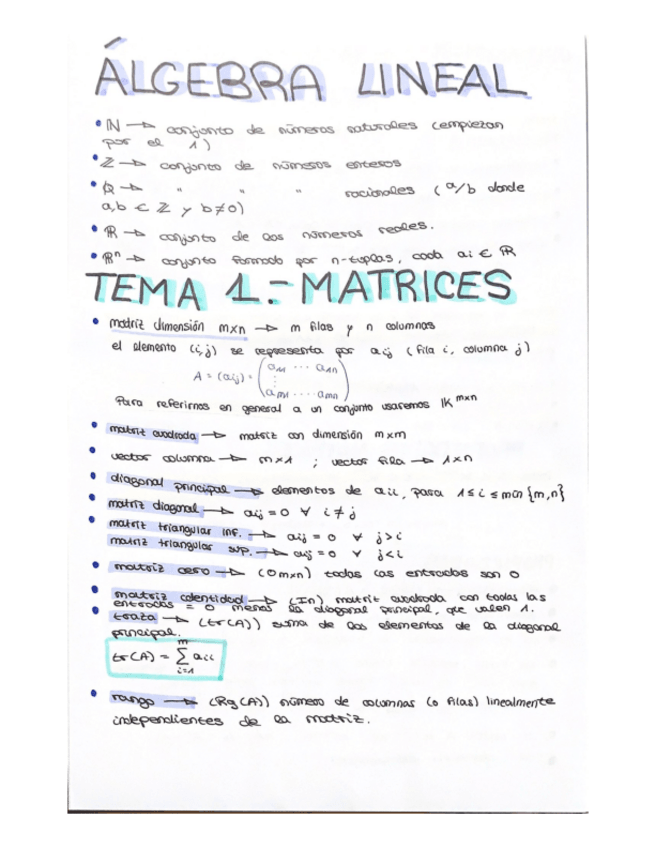 ÁLGEBRA LINEAL
• ℕ → conjunto de números naturales (empiezan
por el 1)
• ℤ → conjunto de números enteros
• ℚ → " " " racionales (a/b donde
a,b ∈ ℤ y b≠0)
• ℝ → conjunto de los números reales.
• ℝⁿ → conjunto formado por n-tuplas, cada ai ∈ ℝ
TEMA 1.- MATRICES
• matriz dimensión mxn → m filas y n columnas
el elemento (i,j) se representa por aij (fila i, columna j)
A = (aij) = (a11 ... a1n
⋮
am1 ... amn)
Para referirnos en general a un conjunto usaremos IK mxn
• matriz cuadrada → matriz con dimensión mxm
• vector columna → mx1 ; vector fila → 1xn
• diagonal principal → elementos de aii, para 1≤i≤min{m,n}
• matriz diagonal → aij = 0 ∀ i≠j
• matriz triangular inf. → aij = 0 ∀ j>i
matriz triangular sup. → aij = 0 ∀ j<i
• matriz cero → (0mxn) todas las entradas son 0
• matriz identidad → (In) matriz cuadrada con todas las
entradas = 0 menos la diagonal principal, que valen 1.
• traza → (tr(A)) suma de los elementos de la diagonal
principal.
tr(A) = m∑i=1 aii
• rango → (Rg(A)) número de columnas (o filas) linealmente
independientes de la matriz.